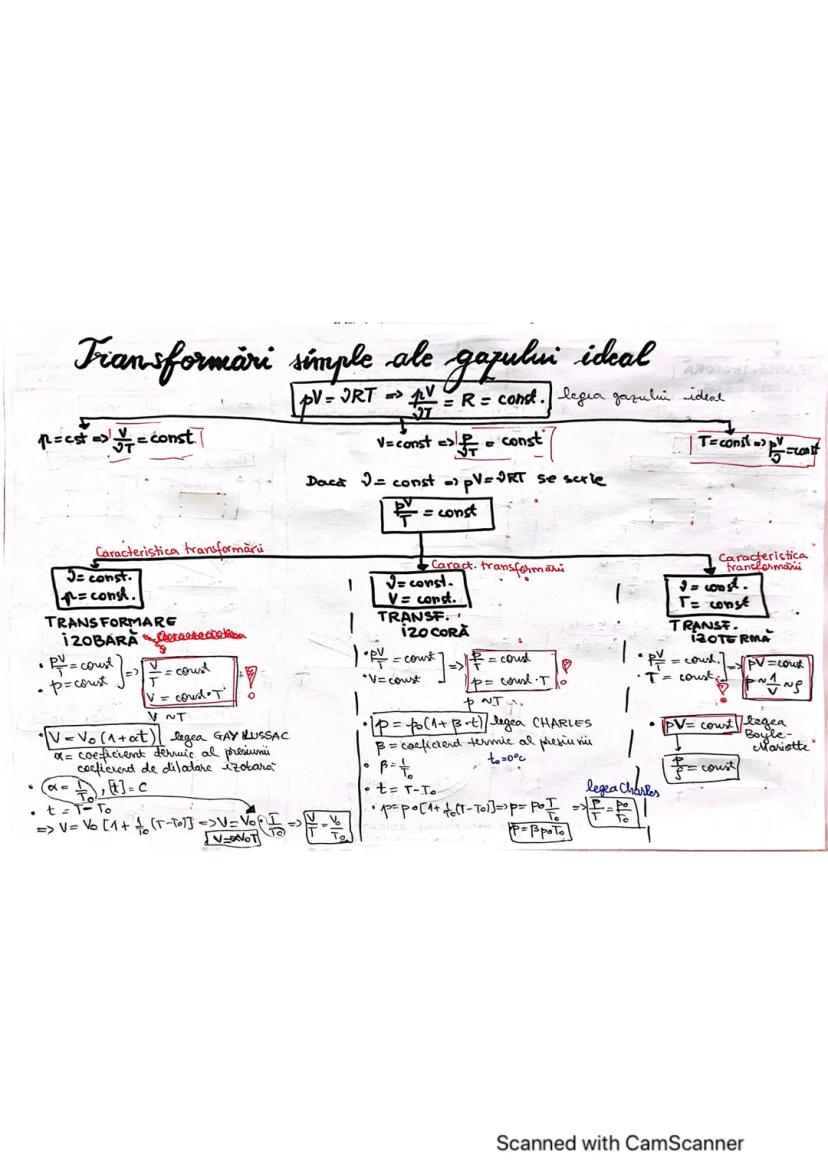 Transformări simple ale gazului ideal
pV = νRT => pV/νT = R = const. legea gazului ideal
p = cst => V/νT = const.
V = const => p/νT = const
T = const => pV/ν = const
Dacă ν = const => pV = νRT se scrie
pV/T = const
Caracteristica transformării
ν = const.
p = const.
TRANSFORMARE
IZOBARĂ
• pV/T = const
• p = const
=> V/T = const
V = const · T
!
V ~ T
• V = V0 (1 + αt) legea GAY LUSSAC
α = coeficient termic al presiunii
coeficient de dilatare izobară
• α = 1/T0, [t] = C
• t = T - T0
=> V = V0 [1 + 1/T0 (T - T0)] => V = V0 · T/T0 => V/T = V0/T0
V = αV0T
Caract. transformării
ν = const.
V = const.
TRANSF.
IZOCORĂ
• pV/T = const
• V = const
=> p/T = const
p = const · T
!
p ~ T
• p = p0 (1 + β · t) legea CHARLES
β = coeficient termic al presiunii
t0 = 0°C
• β = 1/T0
• t = T - T0
legea Charles
• p = p0 [1 + 1/T0 (T - T0)] => p = p0 T/T0 => p/T = p0/T0
p = βp0T0
Caracteristica
transformării
ν = const.
T = const
TRANSF.
IZOTERMĂ
• pV/T = const.
• T = const.
=> pV = const
p ~ 1/V ~ ρ
!
• pV = const legea
Boyle-
Mariotte
p/ρ = const
Scanned with CamScanner